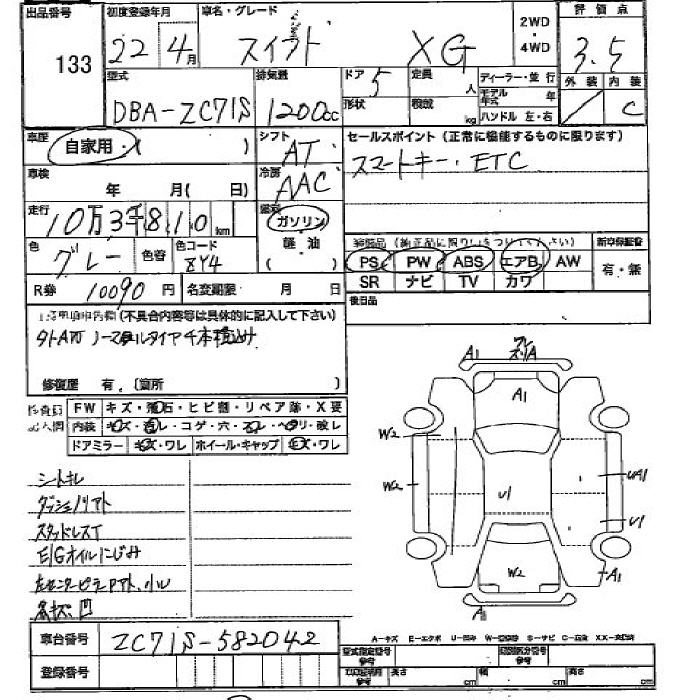 出品番号 133
初度登録年月 22年 4月
車名・グレード スイフト XG
2WD・4WD
評価点 3.5
型式 DBA-ZC71S
排気量 1200cc
ドア 5
形状
定員 人
積載 kg
ディーラー・並行
モデル年式 年
ハンドル 左・右
外装
内装 C
車歴 自家用・( )
シフト AT
セールスポイント(正常に機能するものに限ります)
スマートキー・ETC
車検 年 月(日)
冷房 AAC
走行 10万3千810km
燃料 ガソリン
軽油
( )
色 グレー
色替
色コード 8Y4
R券 10090円
名変期限 月 日
PS PW ABS エアB AW
SR ナビ TV カワ
新車保証書
有・無
後日品
(不具合内容等は具体的に記入して下さい)
ノーマルタイヤ4本積込み
修復歴 有.(箇所 )
FW キズ・飛石・ヒビ割・リペア跡・X要
内装 キズ・汚レ・コゲ・穴・スレ・ヘタリ・破レ
ドアミラー キズ・ワレ ホイール・キャップ キズ・ワレ
シートキレ
スタッドレスT
E/Gオイルにじみ
A1
ワレ
ズリA
A1
W2
W2
U1
UA1
U1
W2
A1
A1
車台番号 ZC71S-582042
登録番号
A-キズ E-エクボ U-凹み S-サビ
型式指定番号 参考
類別区分番号 参考
長さ cm 幅 cm 高さ cm